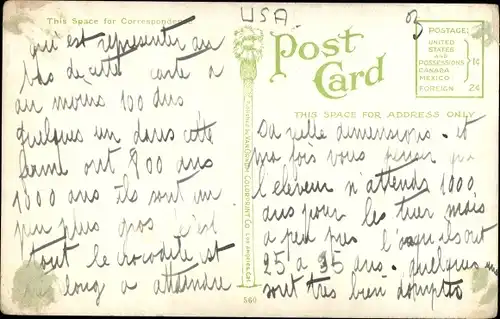 USA.
This Space for Correspondence
Post
Card
POSTAGE:
UNITED
STATES
and
POSSESSIONS
CANADA
MEXICO
1¢
FOREIGN 2¢
THIS SPACE FOR ADDRESS ONLY
qui est representer au
bas de cette carte a
au moins 100 ans
quelques un dans cette
ferme ont 800 ans
1000 ans ils sont un
peu plus gros c'est
tout le crocodile est
long a atteindre
Sa dimensions. et
ma fois vous penser que
l'eleveur n'attends 1000
ans pour les tuer mais
a peu pres l' ils ont
25 a 35 ans. quelques
sont tres bien domptés
VAN ORNUM COLORPRINT CO. LOS ANGELES, CAL.
560